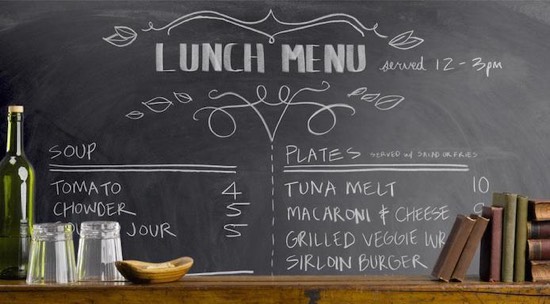 LUNCH MENU served 12 - 3pm
SOUP
TOMATO 4
CHOWDER 5
JOUR 5
PLATES SERVED w/ SALAD OR FRIES
TUNA MELT 10
MACARONI & CHEESE
GRILLED VEGGIE
SIRLOIN BURGER